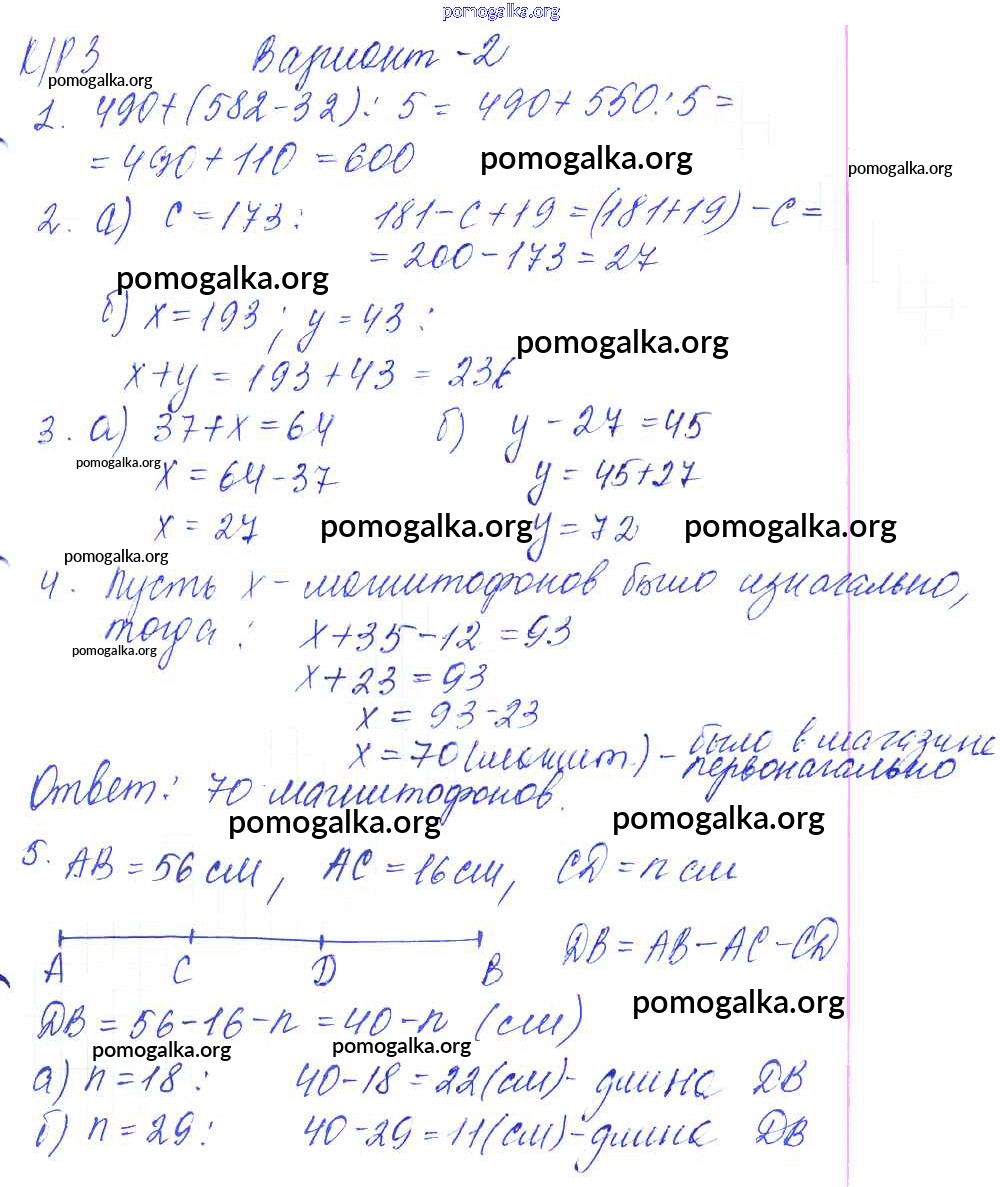 pomogalka.org
К/Р 3 Вариант - 2
pomogalka.org
1. 490+(582-32): 5 = 490+550:5 =
= 490+110 = 600
pomogalka.org pomogalka.org
2. а) c = 173: 181-c+19 = (181+19)-c =
= 200-173 = 27
pomogalka.org
б) x = 193; y = 43:
pomogalka.org
x+y = 193+43 = 236
3. а) 37+x = 64 б) y - 27 = 45
pomogalka.org
x = 64-37 y = 45+27
x = 27 pomogalka.org y = 72 pomogalka.org
pomogalka.org
4. Пусть x - магнитофонов было изначально,
тогда: x+35-12 = 93
pomogalka.org
x+23 = 93
x = 93-23
x = 70 (магнит.) - было в магазине
первоначально
Ответ: 70 магнитофонов.
pomogalka.org pomogalka.org
5. AB = 56 см, AC = 16 см, CD = n см
DB = AB-AC-CD
A C D B
pomogalka.org
DB = 56-16-n = 40-n (см)
pomogalka.org pomogalka.org
а) n = 18: 40-18 = 22 (см) - длина DB
б) n = 29: 40-29 = 11 (см) - длина DB